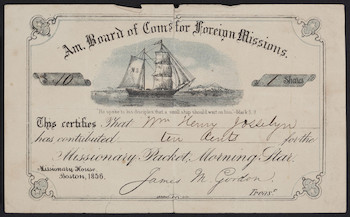 Am. Board of Coms for Foreign Missions.
$ 10
1 Share
"He spake to his disciples that a small ship should wait on him." Mark 3.9
This certifies That Wm Henry Josselyn
has contributed ten cents for the
Missionary Packet, Morning Star.
Missionary House,
Boston, 1856.
James M. Gordon,
Treasr